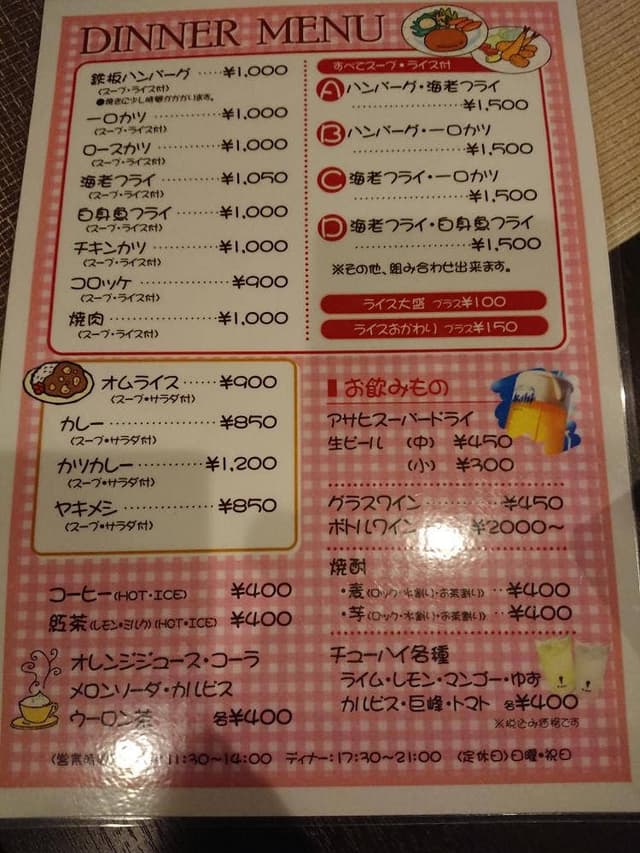 DINNER MENU
鉄板ハンバーグ ‥‥‥ ¥1,000
(スープ・ライス付)
●焼きに少し時間がかかります。
一口カツ ‥‥‥‥ ¥1,000
(スープ・ライス付)
ロースカツ ‥‥‥ ¥1,000
(スープ・ライス付)
海老フライ ‥‥‥ ¥1,050
(スープ・ライス付)
白身魚フライ ‥‥‥ ¥1,000
(スープ・ライス付)
チキンカツ ‥‥‥ ¥1,000
(スープ・ライス付)
コロッケ ‥‥‥‥ ¥900
(スープ・ライス付)
焼肉 ‥‥‥‥‥ ¥1,000
(スープ・ライス付)
すべてスープ・ライス付
A ハンバーグ・海老フライ
‥‥‥‥‥‥ ¥1,500
B ハンバーグ・一口カツ
‥‥‥‥‥‥ ¥1,500
C 海老フライ・一口カツ
‥‥‥‥‥‥ ¥1,500
D 海老フライ・白身魚フライ
‥‥‥‥‥‥ ¥1,500
※その他、組み合わせ出来ます。
ライス大盛 プラス¥100
ライスおかわり プラス¥150
オムライス ‥‥‥ ¥900
(スープ・サラダ付)
カレー ‥‥‥‥‥ ¥850
(スープ・サラダ付)
カツカレー ‥‥‥‥ ¥1,200
(スープ・サラダ付)
ヤキメシ ‥‥‥‥ ¥850
(スープ・サラダ付)
コーヒー(HOT・ICE) ¥400
紅茶(レモン・ミルク)(HOT・ICE) ¥400
オレンジジュース・コーラ
メロンソーダ・カルピス
ウーロン茶 各¥400
お飲みもの
アサヒスーパードライ
生ビール (中) ¥450
(小) ¥300
Asahi
グラスワイン ‥‥‥‥ ¥450
ボトルワイン ¥2000〜
焼酎
・麦(ロック・水割り・お茶割り) ‥ ¥400
・芋(ロック・水割り・お茶割り) ‥ ¥400
チューハイ各種
ライム・レモン・マンゴー・ゆず
カルピス・巨峰・トマト 各¥400
※税込み価格です
(営業時 11:30〜14:00 ディナー:17:30〜21:00 (定休日)日曜・祝日